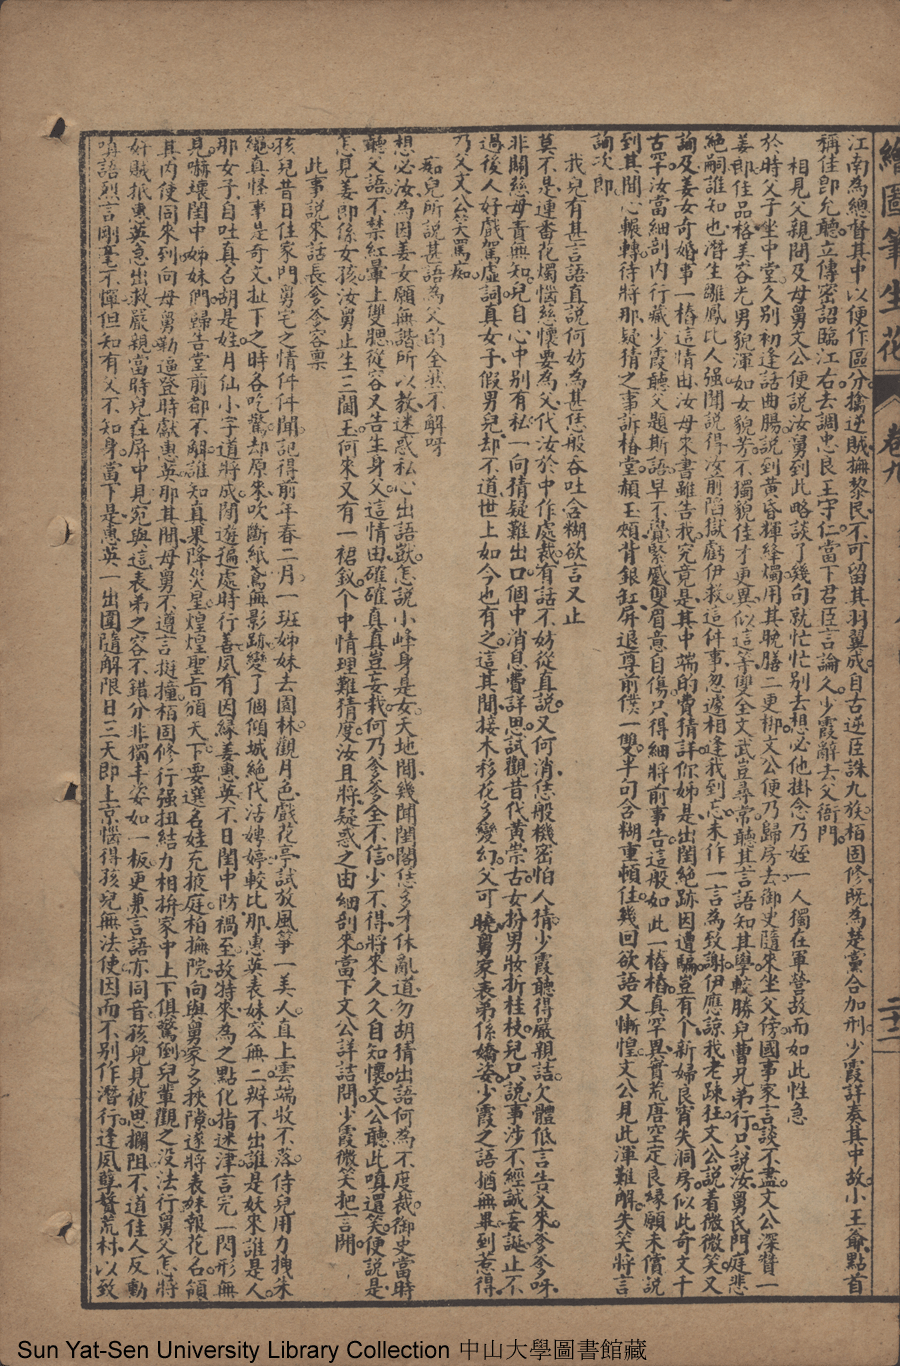 繪圖筆生花 卷九 二十一
江南為總督其中以便作區分擒逆賊撫黎民不可留其羽翼成自古逆臣誅九族栢固修既為楚黨合加刑少霞詳奏其中故小王爺點首
稱佳即允聽立傳密詔臨江右去調忠良王守仁當下君臣言論久少霞辭去父衙門
相見父親問及母舅文公便說汝舅到此略談了幾句就忙忙別去想必他掛念乃姪一人獨在軍營故而如此性急
於時父子坐中堂久別初逢話曲腸說到黃昏輝絳燭用其晚膳二更梆文公便乃歸房去御史隨來坐父傍國事家言談不盡文公深贊一
姜郎佳品格美容光男貌渾如女貌芳不獨貌佳才更異似這等雙全文武豈尋常聽其言語知其學較勝兒曹兄弟行只說汝舅氏門庭悲
絕嗣誰知也潛生雛鳳比人强聞說得汝前陷獄虧伊救這件事忽遽相逢我到忘未作一言為致謝伊應諒我老疎狂文公說着微微笑又
論及姜女奇婚事一樁這情由汝母來書雖告我究竟是其中端的費猜詳你姊是出閨絕跡因遭騙豈有个新婦良宵失洞房似此奇文千
古罕汝當細剖内行藏少霞聽父題斯語早不覺緊蹙雙眉意自傷只得細將前事告這般如此一樁樁真罕異實荒唐空定良緣願未償說
到其間心輾轉待將那疑猜之事訴椿堂頳玉頰背銀缸屏退尊前僕一雙半句含糊重頓住幾回欲語又慚惶文公見此渾難解失笑將言
詢次郎
我兒有甚言語直說何妨為甚恁般吞吐含糊欲言又止
莫不是連番花燭惱絲懷要為父代汝於中作處裁有話不妨從直說又何消恁般機密怕人猜少霞聽得嚴親詰欠體低言告父來爹爹呀
非關絲母責無知兒自心中別有私一向猜疑難出口個中消息費詳思試觀昔代黃崇古女扮男妝折桂枝兒只說事涉不經誠妄誕止不
過後人好戲駕虛詞真女子假男兒却不道世上如今也有之這其間接木移花多變幻父可曉舅家表弟係嬌姿少霞之語猶無畢到惹得
乃父文公笑罵痴
痴兒所說甚語為父的全然不解呀
想必汝為因姜女願無諧所以教迷惑私心出語獃怎說小峰身是女天地間幾聞閨閣恁多才休亂道勿胡猜出語何為不度裁御史當時
聽父語不禁紅暈上雙腮從容又告生身父這情由確確真真豈妄哉何乃爹爹全不信少不得將來久久自知懷文公聽此嗔還笑便說是
怎見姜郎係女孩汝舅止生三閫玉何來又有一裙釵个中情理難猜度汝且將疑惑之由細剖來當下文公詳詰問少霞微笑把言開
此事說來話長爹爹容禀
孩兒昔日住家門舅宅之情件件聞記得前年春二月一班姊妹去園林觀月色戲花亭試放風箏一美人直上雲端收不落侍兒用力拽朱
繩真怪事是奇文扯下之時各吃驚却原來吹斷紙鳶無影跡變了個傾城絕代活娉婷較比那惠英表妹容無二辨不出誰是妖來誰是人
那女子自吐真名胡是姓月仙小字道將成閒遊遍處時行善夙有因緣姜惠英不日閨中防禍至故特來為之點化指迷津言完一閃形無
見嚇壞閨中姊妹們歸告堂前都不解誰知真果降災星煌煌聖旨頒天下要選名娃充掖庭柏撫院向與舅家多挾隙遂將表妹報花名領
其内使同來到向母舅勒逼登時獻惠英那其間母舅不遵言挺撞栢固修行强扭結力相拚家中上下俱驚倒兒輩觀之没法行舅父怎將
奸賊抵惠英急出救嚴親當時兒在屏中見宛與這表弟之容不錯分非獨丰姿如一板更兼言語亦同音孩兒見彼思攔阻不道佳人反動
嗔語烈言剛羞不憚但知有父不知身當下是惠英一出圍隨解限日三天即上京惱得孩兒無法使因而不別作潛行逢夙孽贅荒村以致
Sun Yat-Sen University Library Collection 中山大學圖書館藏